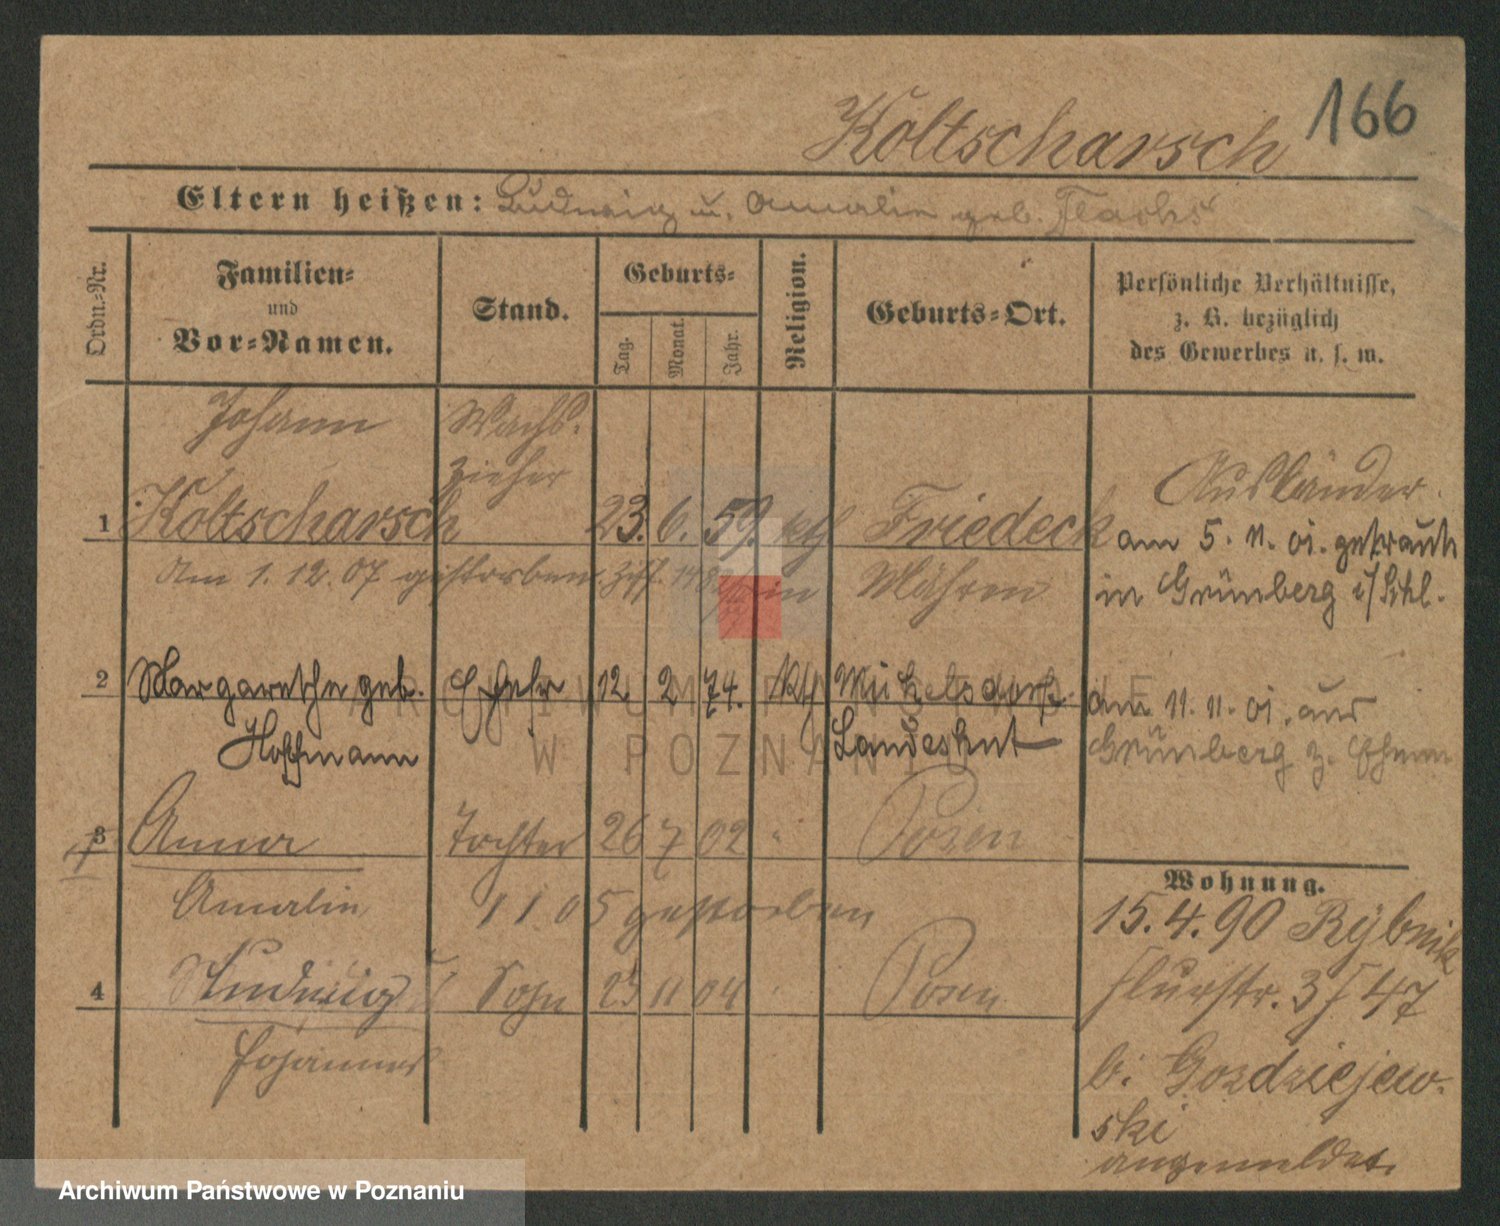 Koltscharsch 166
Eltern heißen: Ludwig u. Amalie geb. Flachs
Ordn.-Nr.
Familien-
und
Vor-Namen.
Stand.
Geburts-
Tag.
Monat.
Jahr.
Religion.
Geburts-Ort.
Persönliche Verhältnisse,
z. B. bezüglich
des Gewerbes u. s. w.
Johann Wachs-
zieher
1 Koltscharsch 23. 6. 59. kth Friedeck
Am 1. 12. 07 gestorben Ziff.
Mähren
Ausländer.
am 5. 11. 01. getraut
in Grünberg i/Schl.
2 Margarethe geb. Ehefr 12. 2 74. kth Michelsdorf.
Hoffmann Landeshut
am 11. 11. 01. aus
Grünberg z. Ehem
3 Anna Tochter 26 7 02 " Posen
Amalie 1 1 05 gestorben
4 Ludwig Sohn 25 11 04 " Posen
Johannes
Wohnung.
15. 4. 90 Rybnik
Flurstr. 3 47
b. Gozdziejew-
ski
angemeldet.
ARCHIWUM PAŃSTWOWE
W POZNANIU
Archiwum Państwowe w Poznaniu